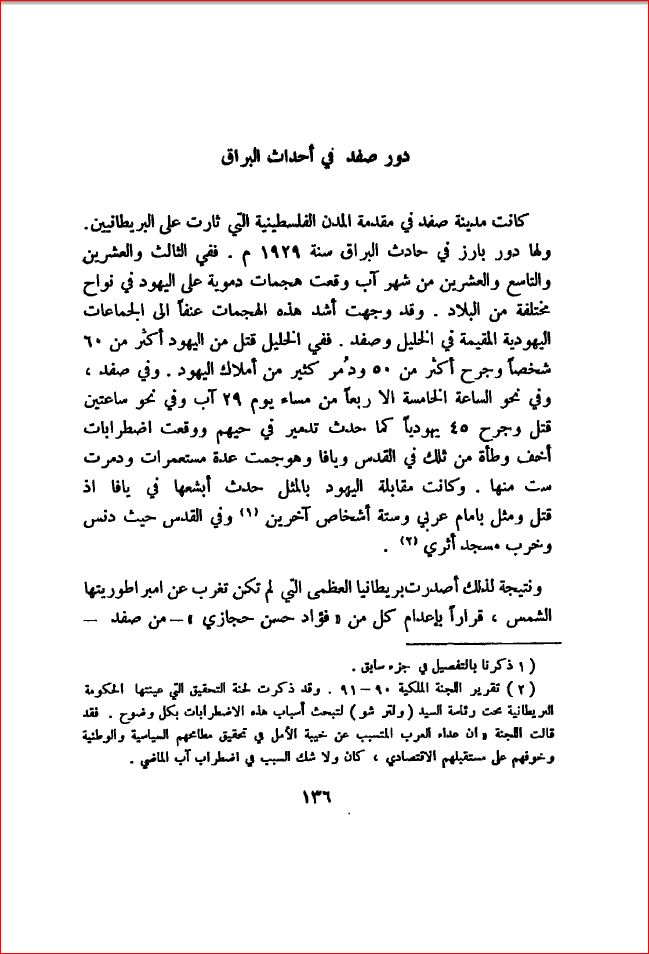 دور صفد في أحداث البراق
كانت مدينة صفد في مقدمة المدن الفلسطينية التي ثارت على البريطانيين.
ولها دور بارز في حادث البراق سنة ١٩٢٩ م . ففي الثالث والعشرين
والتاسع والعشرين من شهر آب وقعت هجمات دموية على اليهود في نواح
مختلفة من البلاد . وقد وجهت أشد هذه الهجمات عنفاً الى الجماعات
اليهودية المقيمة في الخليل وصفد . ففي الخليل قتل من اليهود أكثر من ٦٠
شخصاً وجرح أكثر من ٥٠ ودُمر كثير من أملاك اليهود . وفي صفد ،
وفي نحو الساعة الخامسة الا ربعاً من مساء يوم ٢٩ آب وفي نحو ساعتين
قتل وجرح ٤٥ يهودياً كما حدث تدمير في حيهم ووقعت اضطرابات
أخف وطأة من تلك في القدس ويافا وهوجمت عدة مستعمرات ودمرت
ست منها . وكانت مقابلة اليهود بالمثل حدث أبشعها في يافا اذ
قتل ومثل بامام عربي وستة أشخاص آخرين (١) وفي القدس حيث دنس
وخرب مسجد أثري (٢) .
ونتيجة لذلك أصدرت بريطانيا العظمى التي لم تكن تغرب عن امبراطوريتها
الشمس ، قراراً بإعدام كل من « فؤاد حسن حجازي » – من صفد –
(١ ذكرنا بالتفصيل في جزء سابق .
(٢) تقرير اللجنة الملكية ٩٠ – ٩١ . وقد ذكرت لجنة التحقيق التي عينتها الحكومة
البريطانية تحت رئاسة السيد ( ولتر شو ) لتبحث أسباب هذه الاضطرابات بكل وضوح . فقد
قالت اللجنة « ان عداء العرب المتسبب عن خيبة الأمل في تحقيق مطامحهم السياسية والوطنية
وخوفهم على مستقبلهم الاقتصادي ، كان ولا شك السبب في اضطراب آب الماضي .
١٣٦